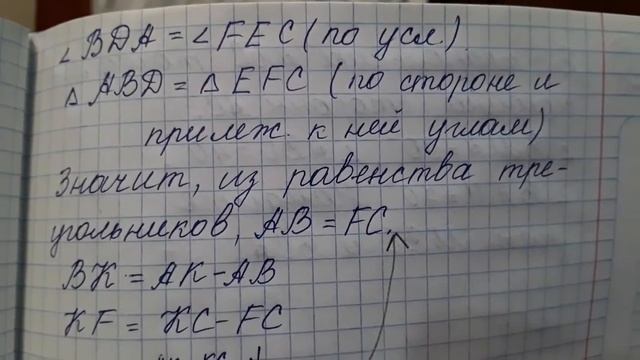 ∠BDA = ∠FEC (по усл.)
△ABD = △EFC (по стороне и
прилеж. к ней углам)
Значит, из равенства тре-
угольников, AB = FC.
BK = AK - AB
KF = KC - FC